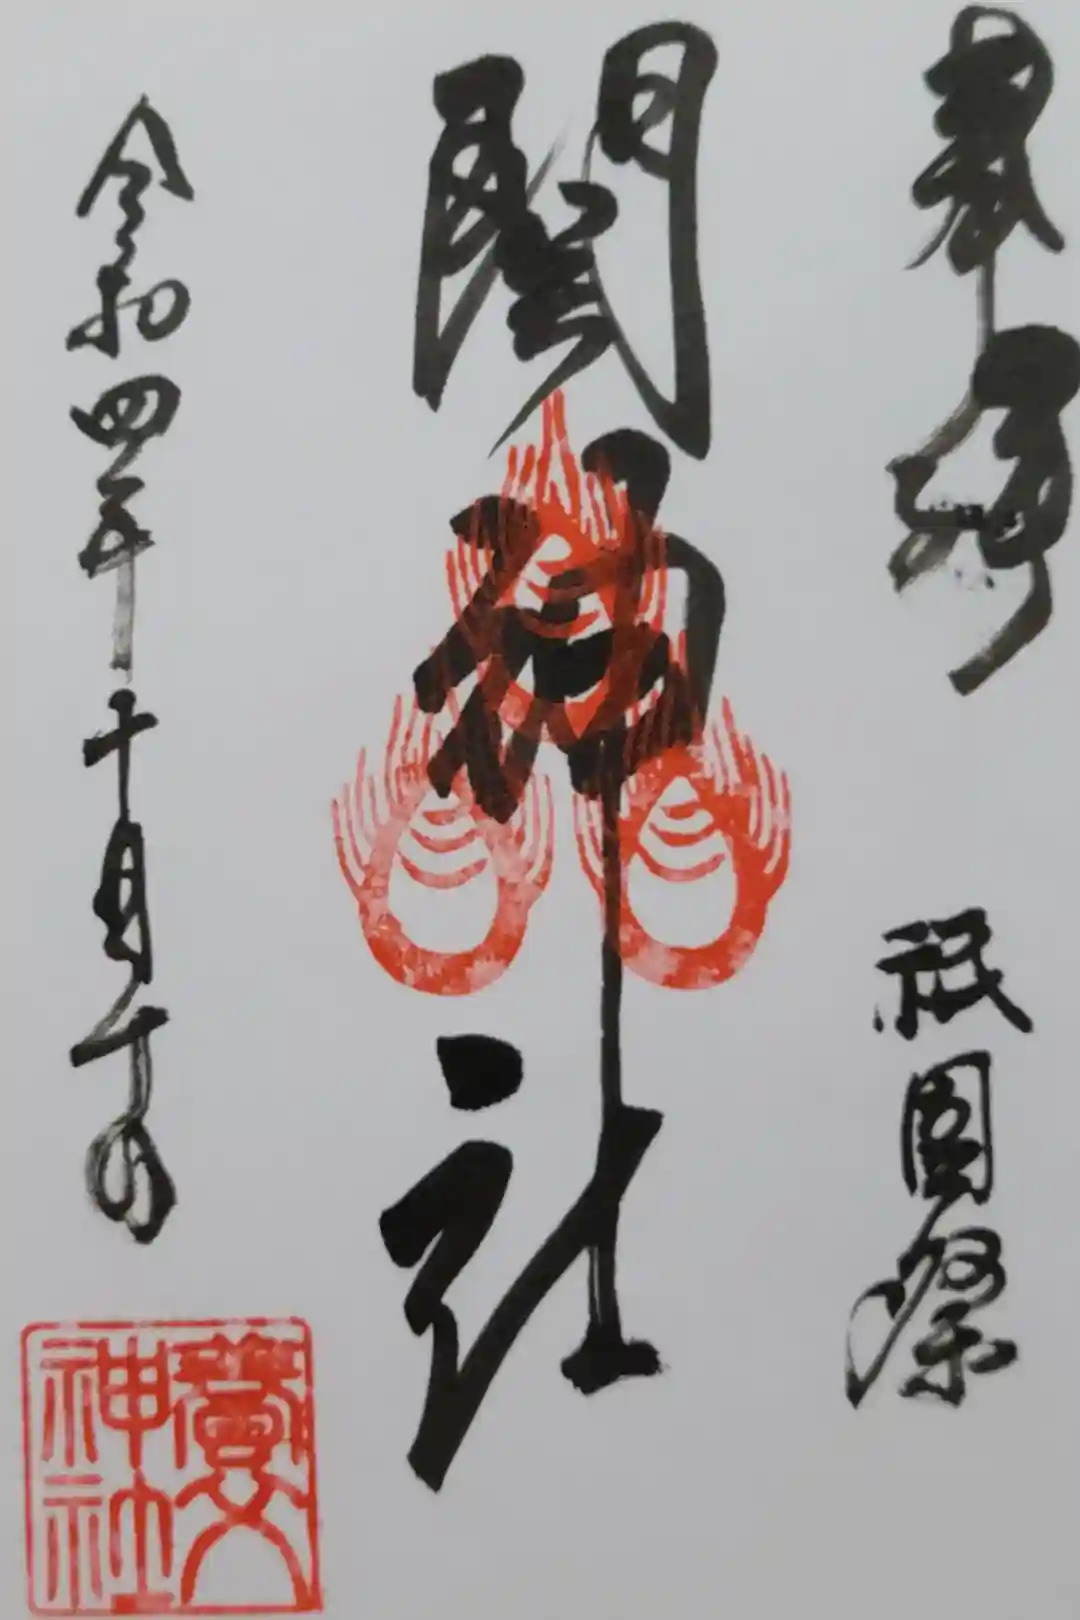 奉拝　祇園祭
関神社
令和四年十月十日
神社